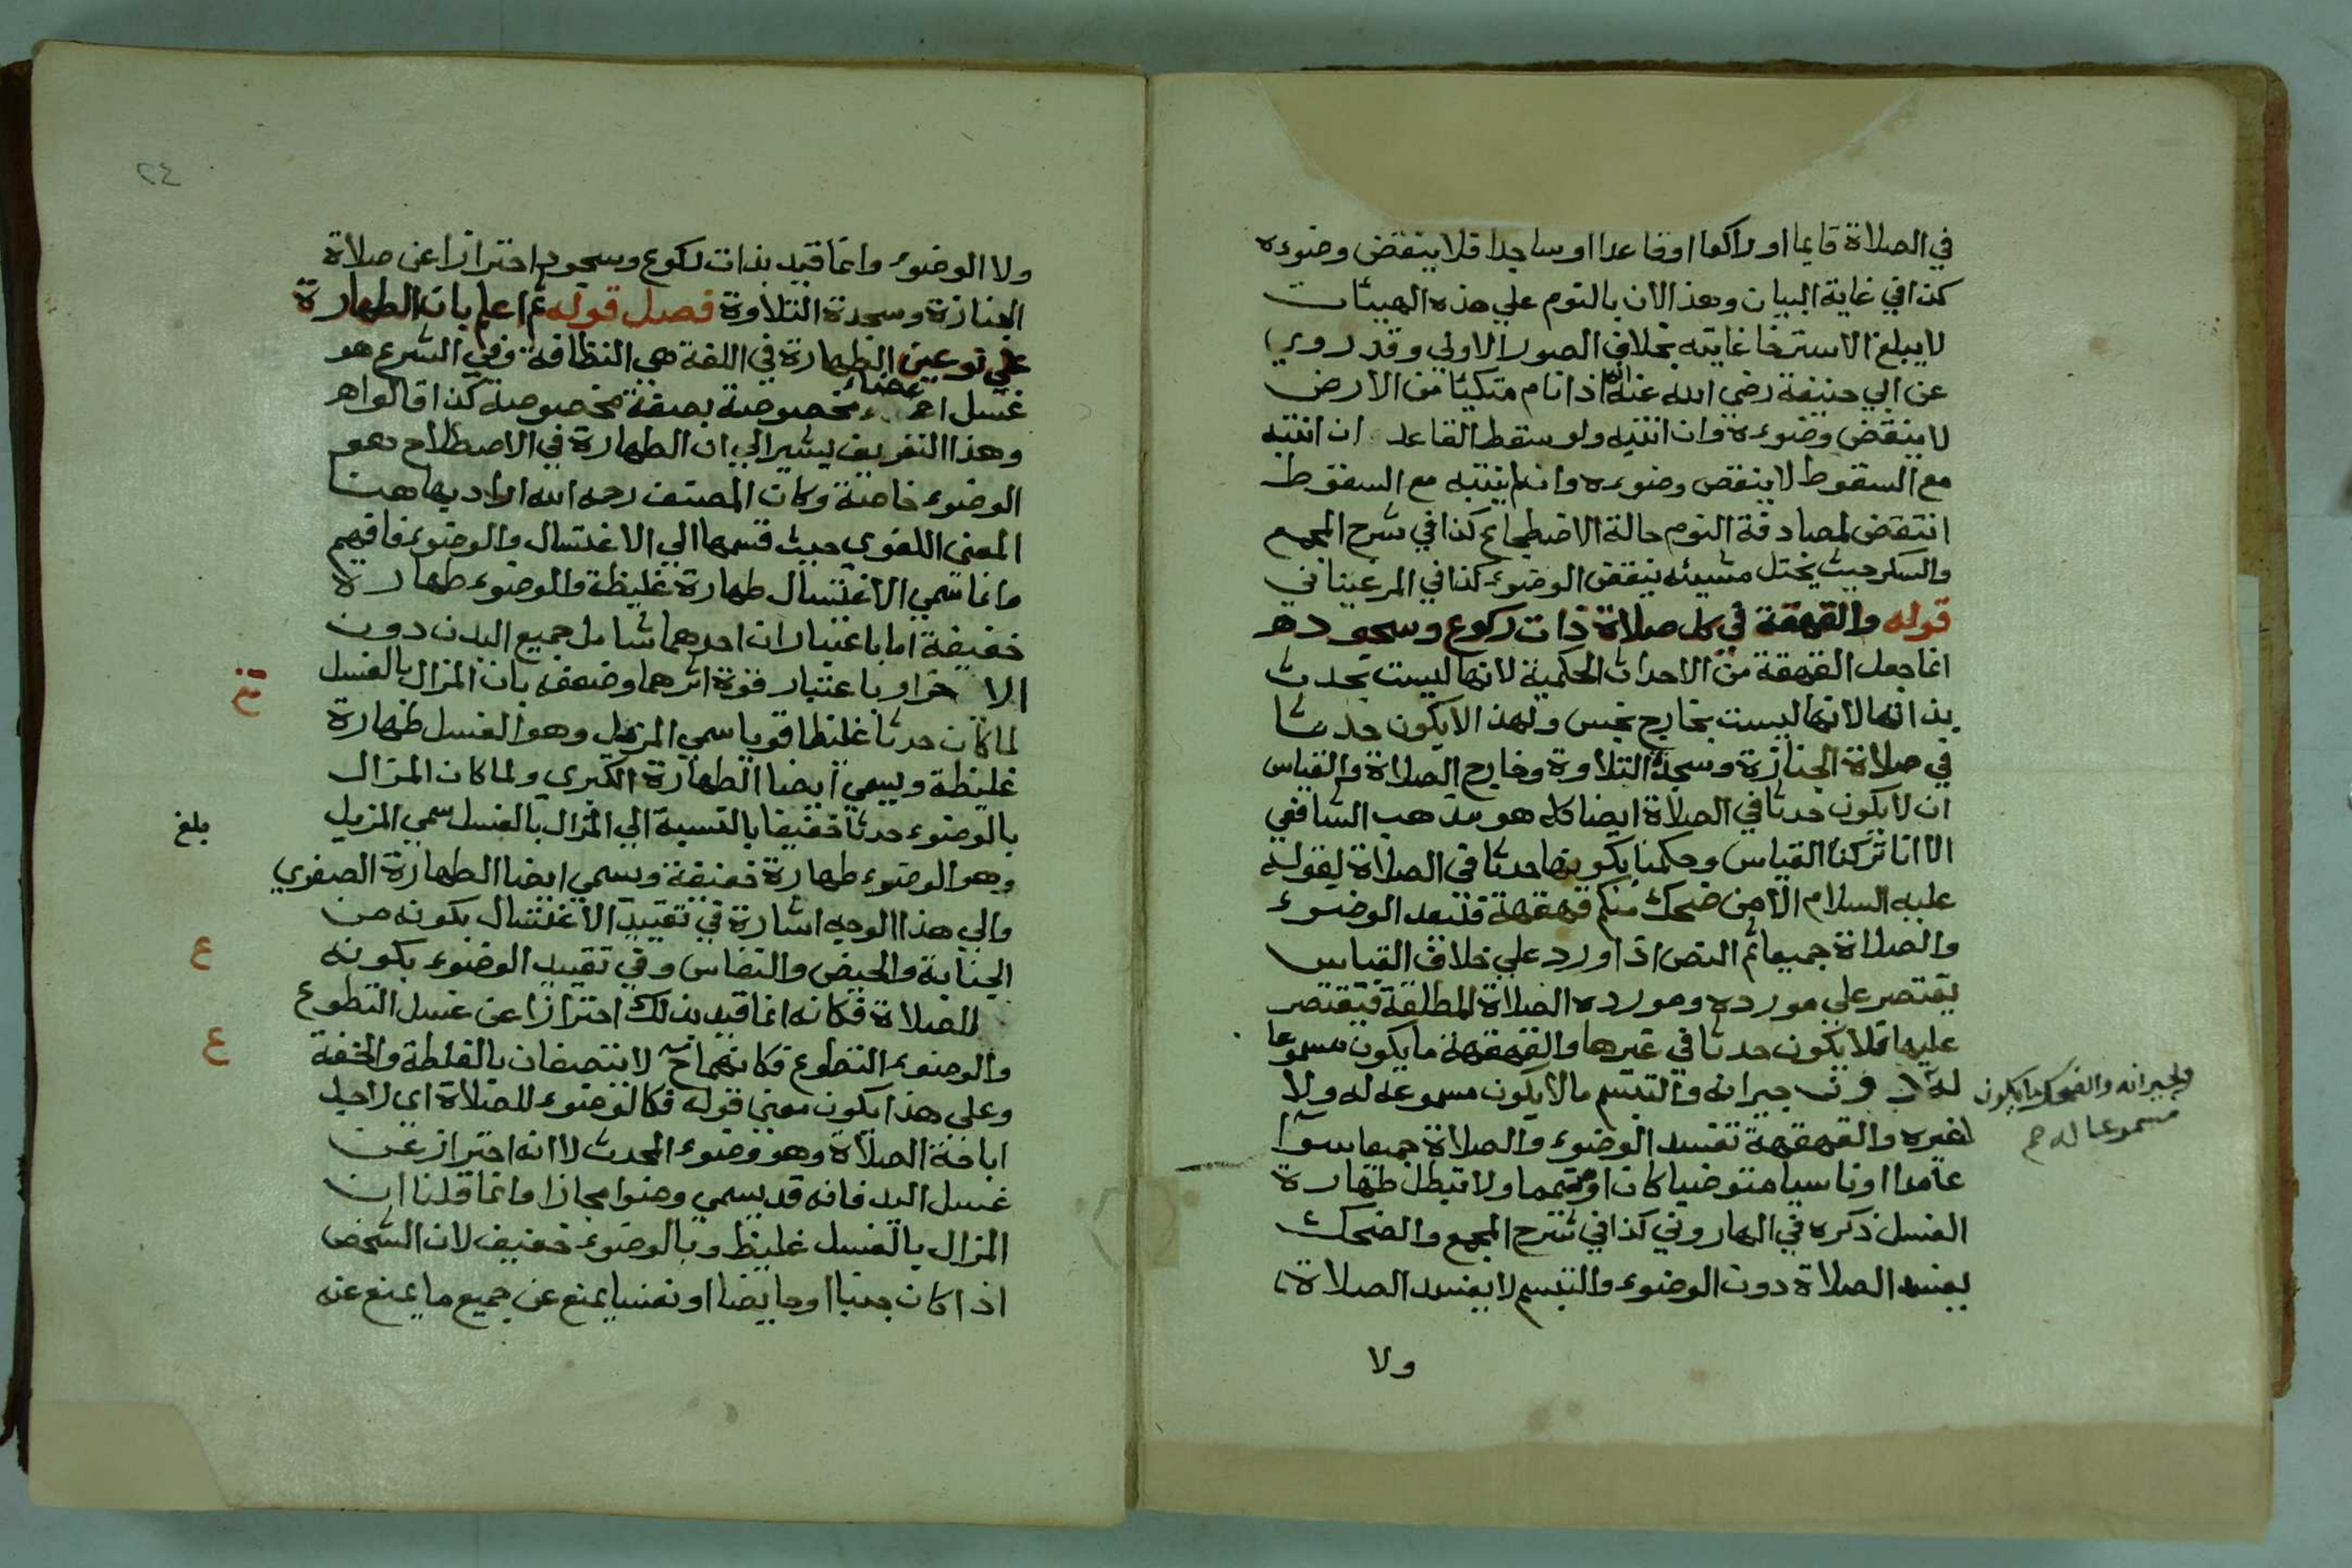 في الصلاة قايما او راكعا او قاعدا او ساجدا فلا ينقض وضوءه
كذا في غاية البيان وهذا لان بالنوم علي هذه الهيئات
لا يبلغ الاسترخا غايته بخلاف الصور الاولي وقد روي
عن ابي حنيفة رضي الله عنه انه اذا نام متكيئا من الارض
لا ينقض وضوءه وان انتبه ولو سقط القاعد ان انتبه
مع السقوط لا ينقض وضوءه وان لم ينتبه مع السقوط
انتقض لمصادفة النوم حالة الاضطجاع كذا في شرح المجمع
والسكر حيث يختل مشيئه ينقض الوضوء كذا في المرغيناني
قوله والقهقهة في كل صلاة ذات ركوع وسجود هـ
انما جعل القهقهة من الاحداث الحكمية لانها ليست بحدث
بذاتها لانها ليست بخارج نجس ولهذا لا يكون حدثا
في صلاة الجنازة وسجدة التلاوة وخارج الصلاة والقياس
ان لا يكون حدثا في الصلاة ايضا كله هو مذهب الشافعي
الا انا تركنا القياس وحكمنا بكونها حدثا في الصلاة لقوله
عليه السلام الا من ضحك منكم قهقهة فليعد الوضوء
والصلاة جميعا ثم النص اذا ورد علي خلاف القياس
يقتصر علي مورده ومورده الصلاة المطلقة فيقتصر
عليها فلا يكون حدثا في غيرها والقهقهة ما يكون مسموعا
له دون جيرانه والتبسم مالا يكون مسموعا له ولا
لغيره والقهقهة تفسد الوضوء والصلاة جميعا سوا
عامدا او ناسيا متوضيا كان او متيمما ولا تبطل طهارة
الغسل ذكره في الهاروني كذا في شرح المجمع والضحك
يفسد الصلاة دون الوضوء والتبسم لا يفسد الصلاة
ولا
ولجيرانه والضحك ما يكون
مسموعا له صح
٢٤
ولا الوضوء وانما قيد بذات ركوع وسجود احترازا عن صلاة
الجنازة وسجدة التلاوة فصل قوله ثم اعلم بان الطهارة
علي نوعين الطهارة في اللغة هي النظافة وفي الشرع هو
غسل اعضاء مخصوصة بصفة مخصوصة كذا قالوا هـ
وهذا التعريف يشير الي ان الطهارة في الاصطلاح هو
الوضوء خاصة وكان المصنف رحمه الله اراد بها هنا
المعني اللغوي حيث قسمها الي الاغتسال والوضوء فافهم
وانما سمي الاغتسال طهارة غليظة والوضوء طهارة
خفيفة اما باعتبار ان احدهما شامل جميع البدن دون
الاخر او باعتبار قوة اثرهما وضعفه بان المزال بالغسل
لما كان حدثا غليظا قويا سمي المزيل وهو الغسل طهارة
غليظة ويسمي ايضا الطهارة الكبري ولما كان المزال
بالوضوء حدثا خفيفا بالنسبة الي المزال بالغسل سمي المزيل
وهو الوضوء طهارة خفيفة ويسمي ايضا الطهارة الصغري
والي هذا الوجه اشارة في تقييد الاغتسال بكونه من
الجنابة والحيض والنفاس وفي تقييد الوضوء بكونه
للصلاة فكانه انما قيد بذلك احترازا عن غسل التطوع
والوضوء التطوع فكانهما ح لا يتصفان بالغلظة والخفة
وعلي هذا يكون معني قوله فكالوضوء للصلاة اي لاجل
اباحة الصلاة وهو وضوء المحدث لا انه احتراز عن
غسل اليد فانه قد يسمي وضوا مجازا وانما قلنا ان
المزال بالغسل غليظ وبالوضوء خفيف لان الشخص
اذا كان جنبا او حايضا او نفسا يمنع عن جميع ما يمنع عنه
بلغ
ع
ع